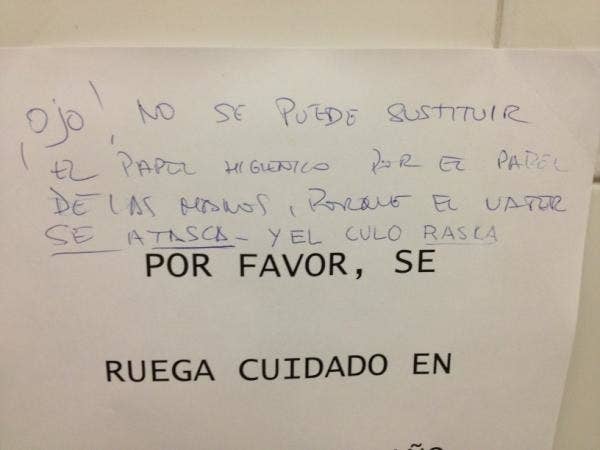 ¡Ojo!, NO SE PUEDE SUSTITUIR
EL PAPEL HIGIENICO POR EL PAPEL
DE LAS MANOS, PORQUE EL VATER
SE ATASCA - Y EL CULO RASCA
POR FAVOR, SE
RUEGA CUIDADO EN